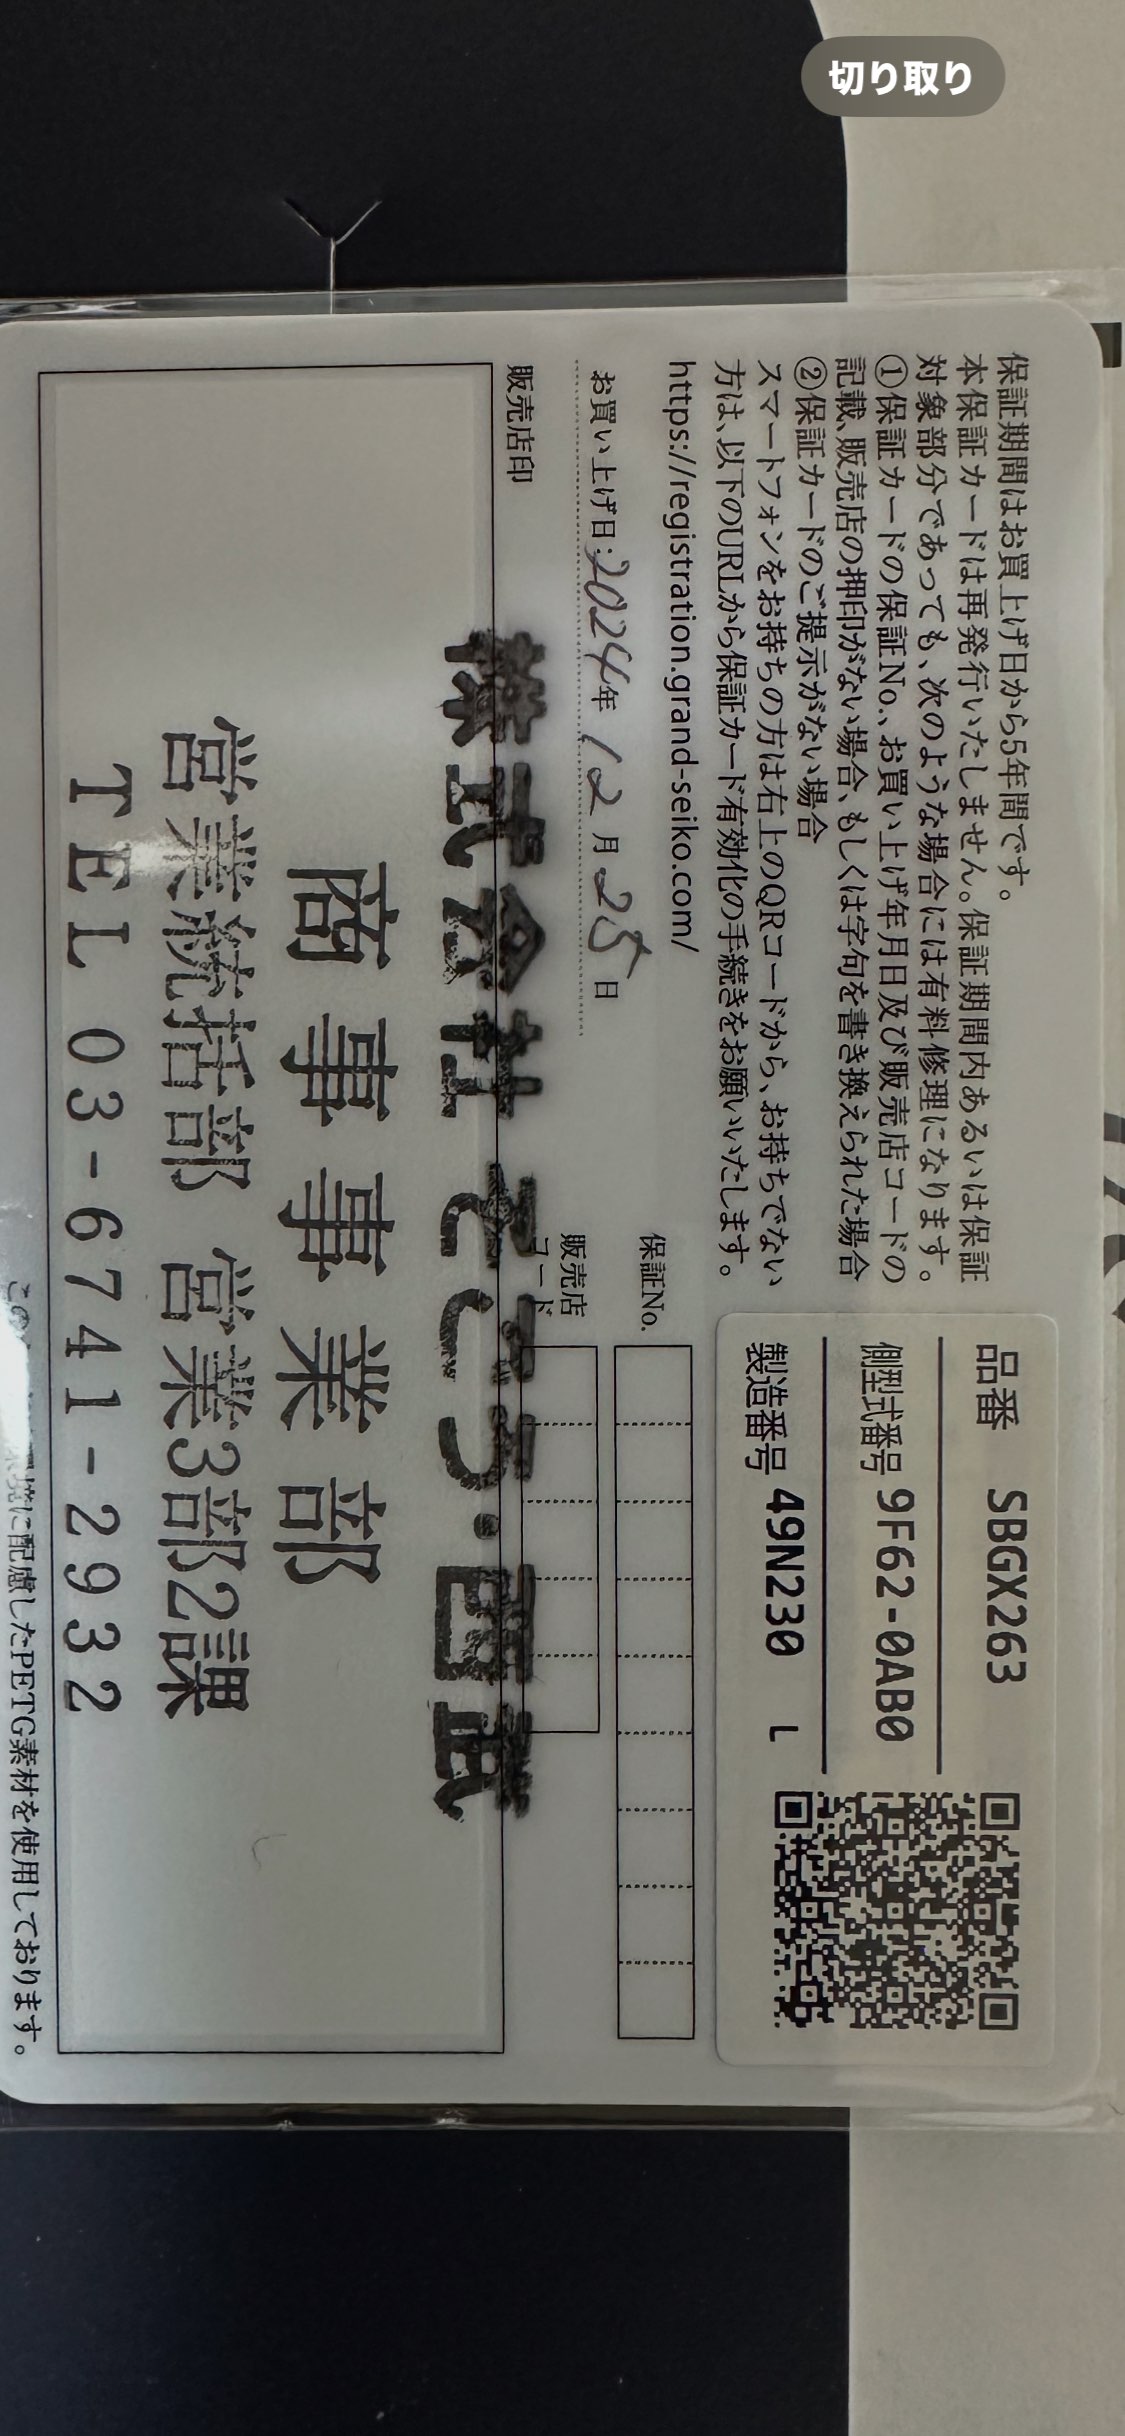 切り取り
保証期間はお買上げ日から5年間です。
本保証カードは再発行いたしません。保証期間内あるいは保証
対象部分であっても、次のような場合には有料修理になります。
①保証カードの保証No.、お買い上げ年月日及び販売店コードの
記載、販売店の押印がない場合、もしくは字句を書き換えられた場合
②保証カードのご提示がない場合
スマートフォンをお持ちの方は右上のQRコードから、お持ちでない
方は、以下のURLから保証カード有効化の手続きをお願いいたします。
https://registration.grand-seiko.com/
品番 SBGX263
側型式番号 9F62-0AB0
製造番号 49N230 L
保証No.
お買い上げ日:2024年12月25日
販売店
コード
販売店印
株式会社そごう・西武
商事事業部
営業統括部 営業3部2課
TEL 03-6741-2932
に配慮したPETG素材を使用しております。